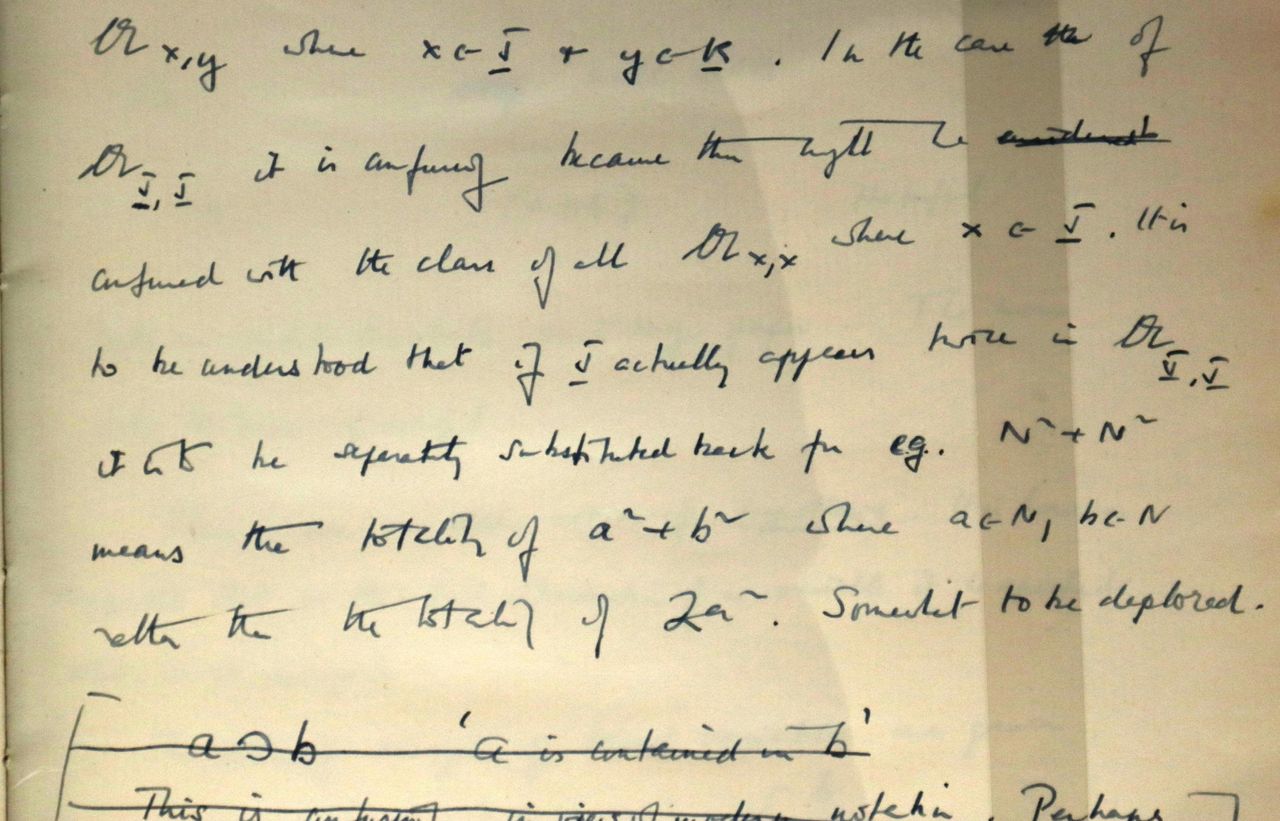 𝔄 x,y where x ∈ J + y ∈ K . In the case the of
𝔄 J, J it is confusing because this might be
confused with the class of all 𝔄 x,x where x ∈ J . It is
to be understood that if J actually appears twice in 𝔄 J, J
it is to be separately substituted back for eg. N² + N²
means the totality of a² + b² where a ∈ N, b ∈ N
rather than the totality of 2a². Somewhat to be deplored.
[ a ⊃ b 'a is contained in b'
This is in view of modern notation. Perhaps ]